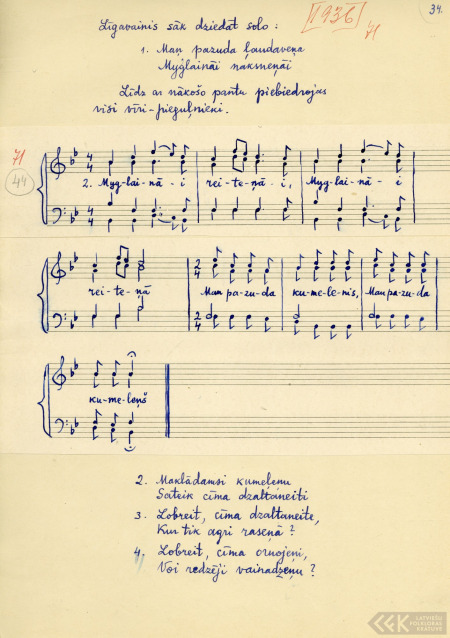 34.
[1936]
71
Līgavainis sāk dziedāt solo:
1. Maņ pazuda ļaudaveņa
Myglaināi naksneņāi
Līdz ar nākošo pantu piebiedrojas
visi vīri-pieguļnieki.
71
44
2. Myg-lai-nā-i rei-te-ņā-i, Myg-lai-nā-i
rei-te-ņā Maņ pa-zu-da ku-me-le-ņis, Maņ pa-zu-da
ku-me-leņš
2. Maklādamsi kumeļeņu
Sateik cīma dzaltaneiti
3. Lobreit, cīma dzaltaneite,
Kur tik agri raseņā?
4. Lobreit, cīma
Voi redzēji vainadzeņu?
LATVIEŠU
FOLKLORAS
KRĀTUVE